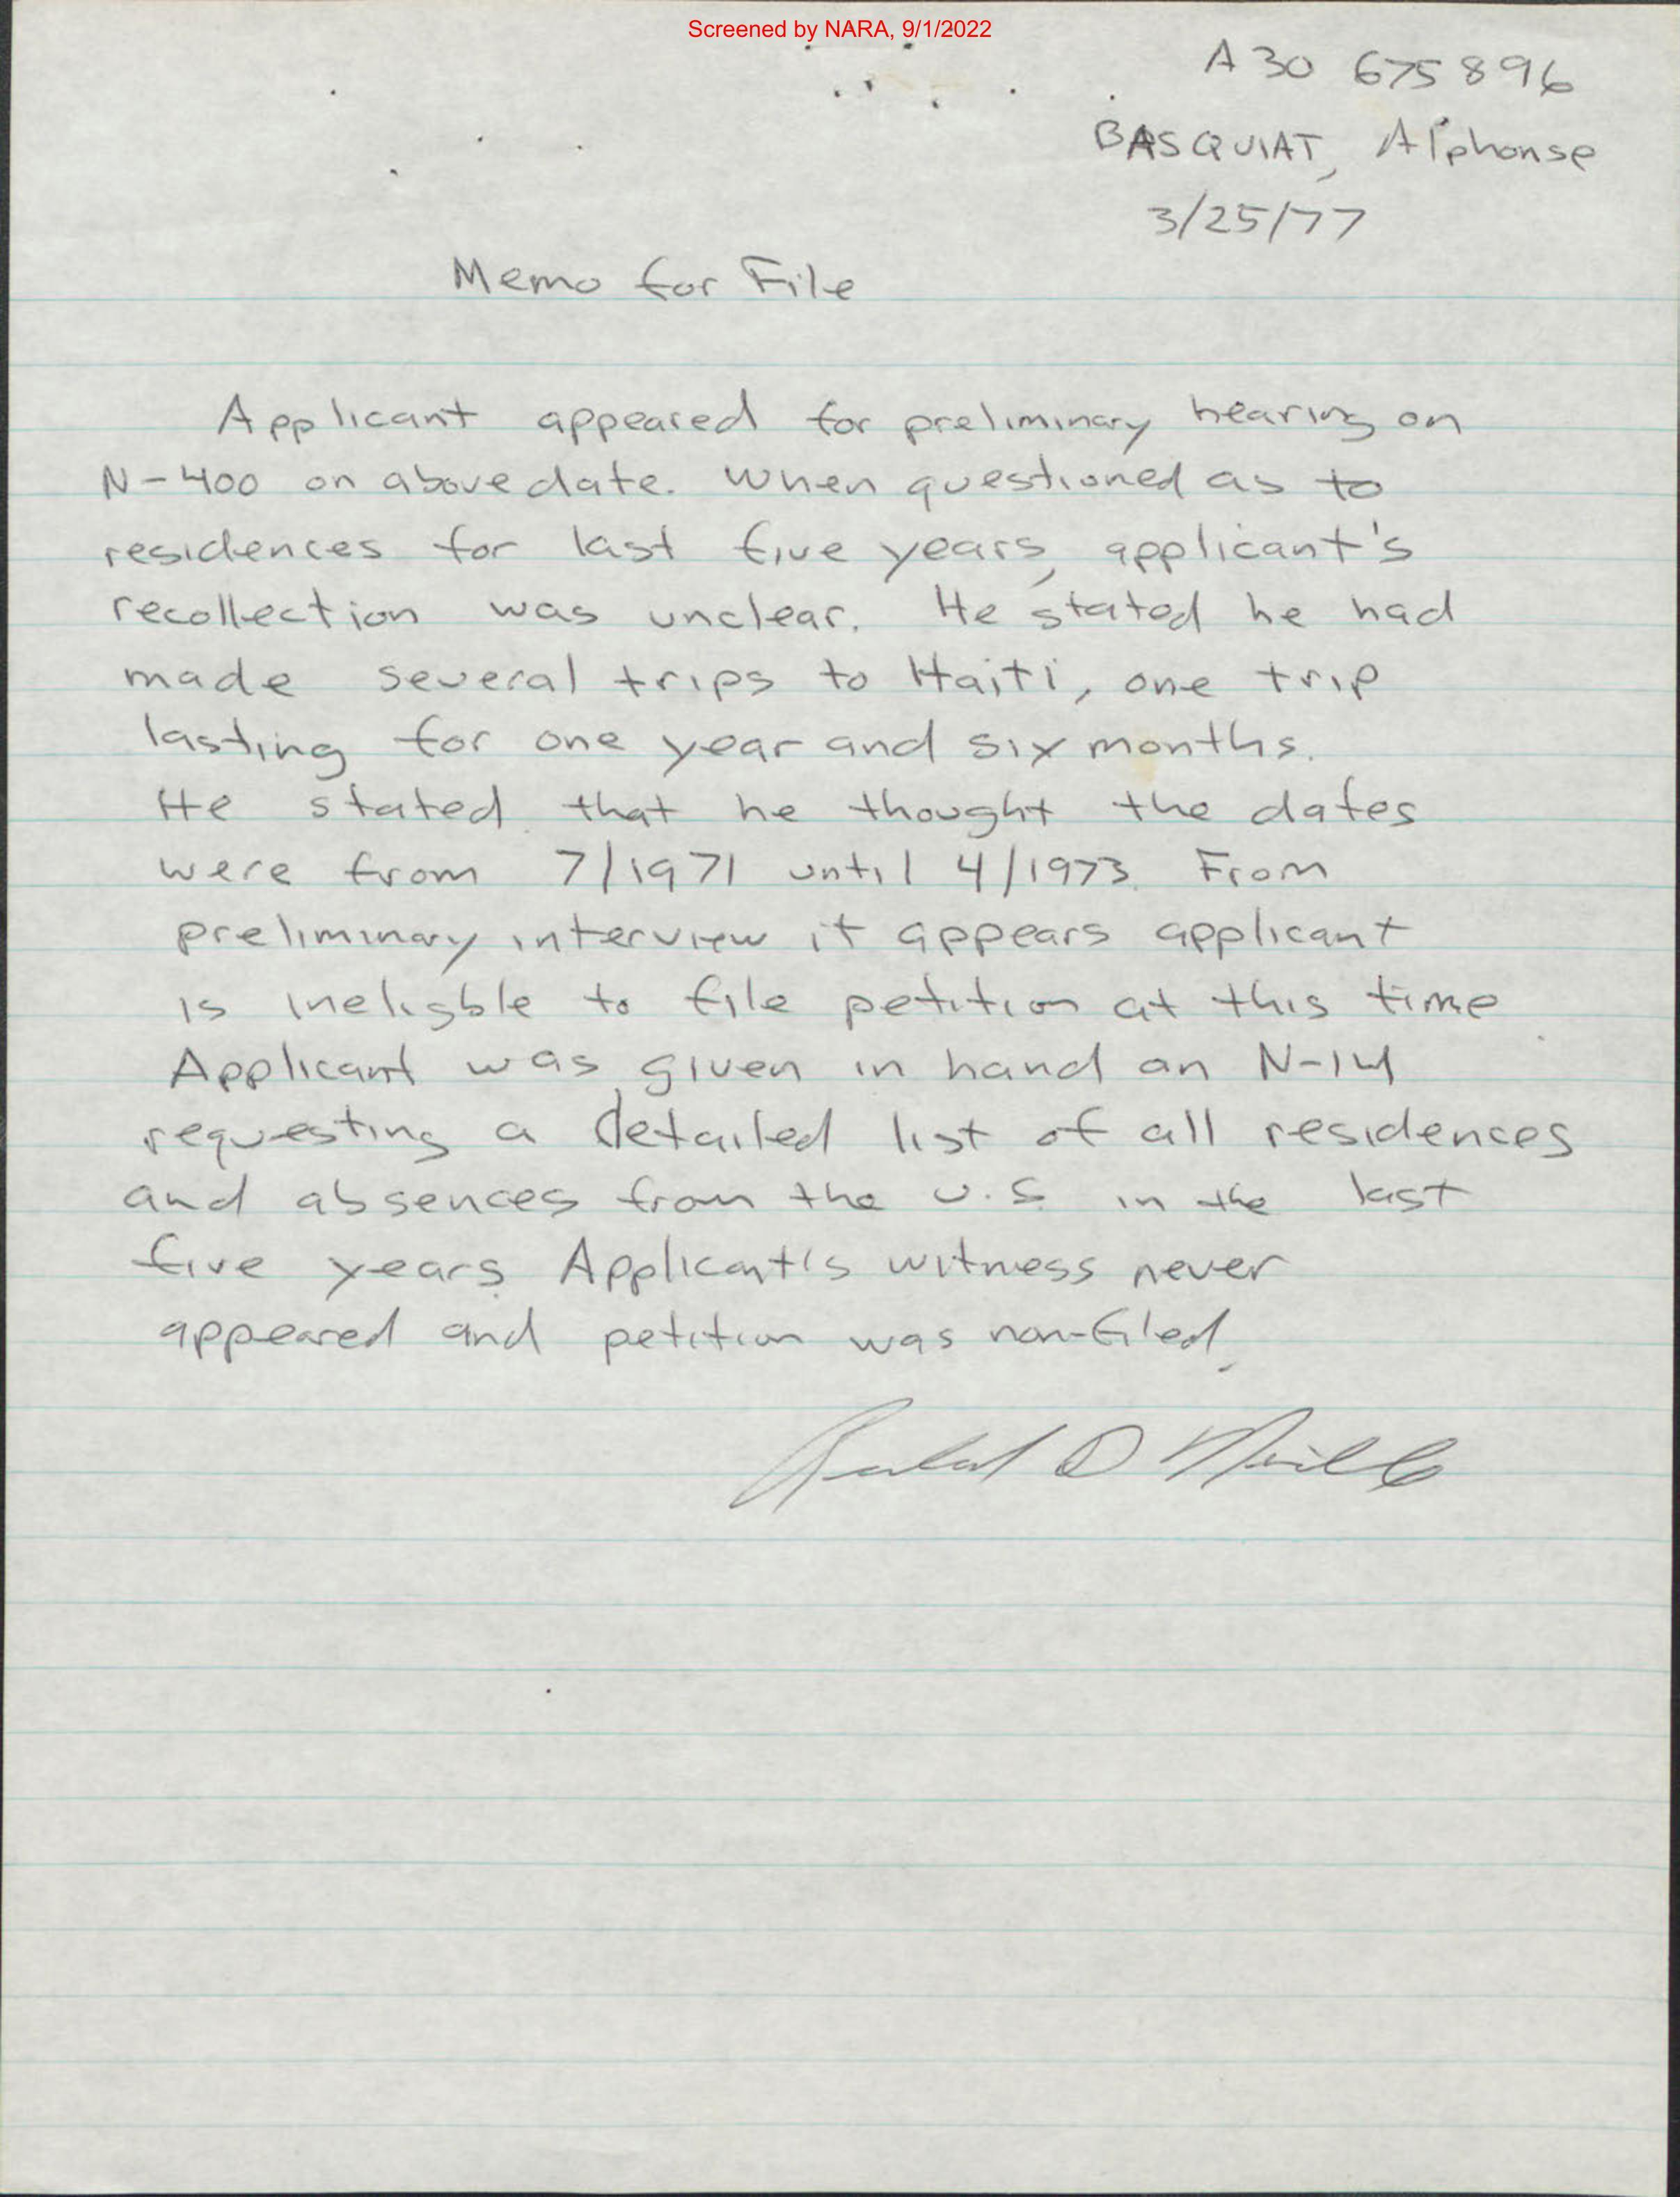 Screened by NARA, 9/1/2022
A 30 675 896
BASQUIAT, Alphonse
3/25/77
Memo for File
Applicant appeared for preliminary hearing on
N-400 on above date. When questioned as to
residences for last five years, applicant's
recollection was unclear. He stated he had
made several trips to Haiti, one trip
lasting for one year and six months.
He stated that he thought the dates
were from 7/1971 until 4/1973. From
preliminary interview it appears applicant
is ineligble to file petition at this time
Applicant was given in hand an N-14
requesting a detailed list of all residences
and absences from the U.S. in the last
five years. Applicant's witness never
appeared and petition was non-filed.